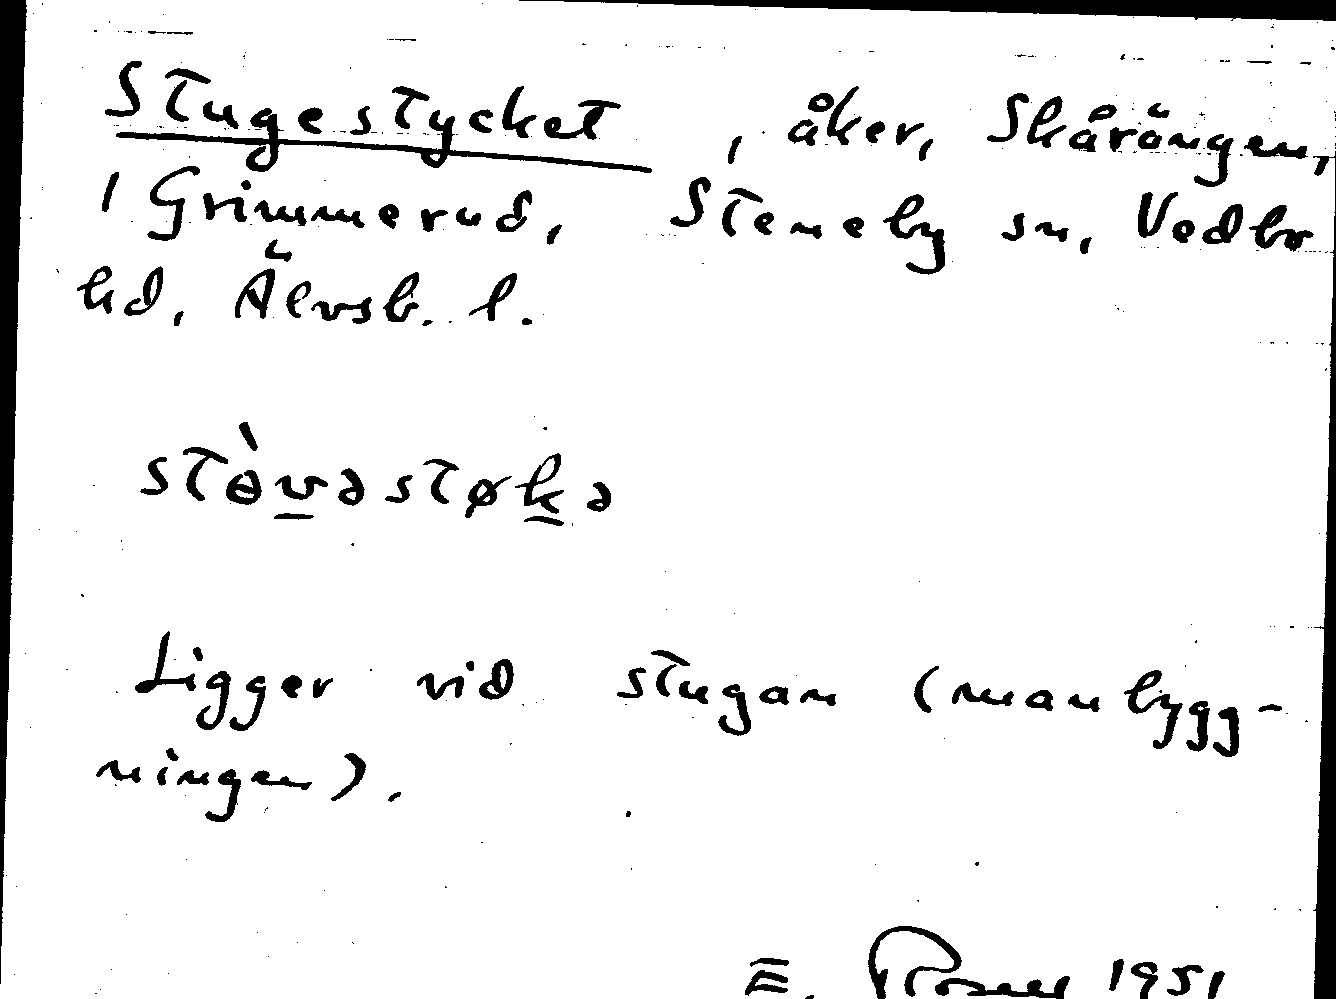 Stugestycket, åker, Skårängen,
1 Grimmerud, Steneby sn, Vedbo
hd, Älvsb. l.
stɵ̀v̲əstøk̲ə
Ligger vid stugan (manbygg-
ningen).
E. 1951